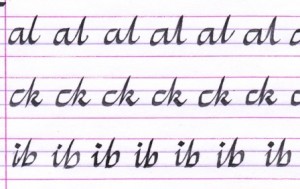 al al al al al al a
ck ck ck ck ck ck c
ib ib ib ib ib ib ib